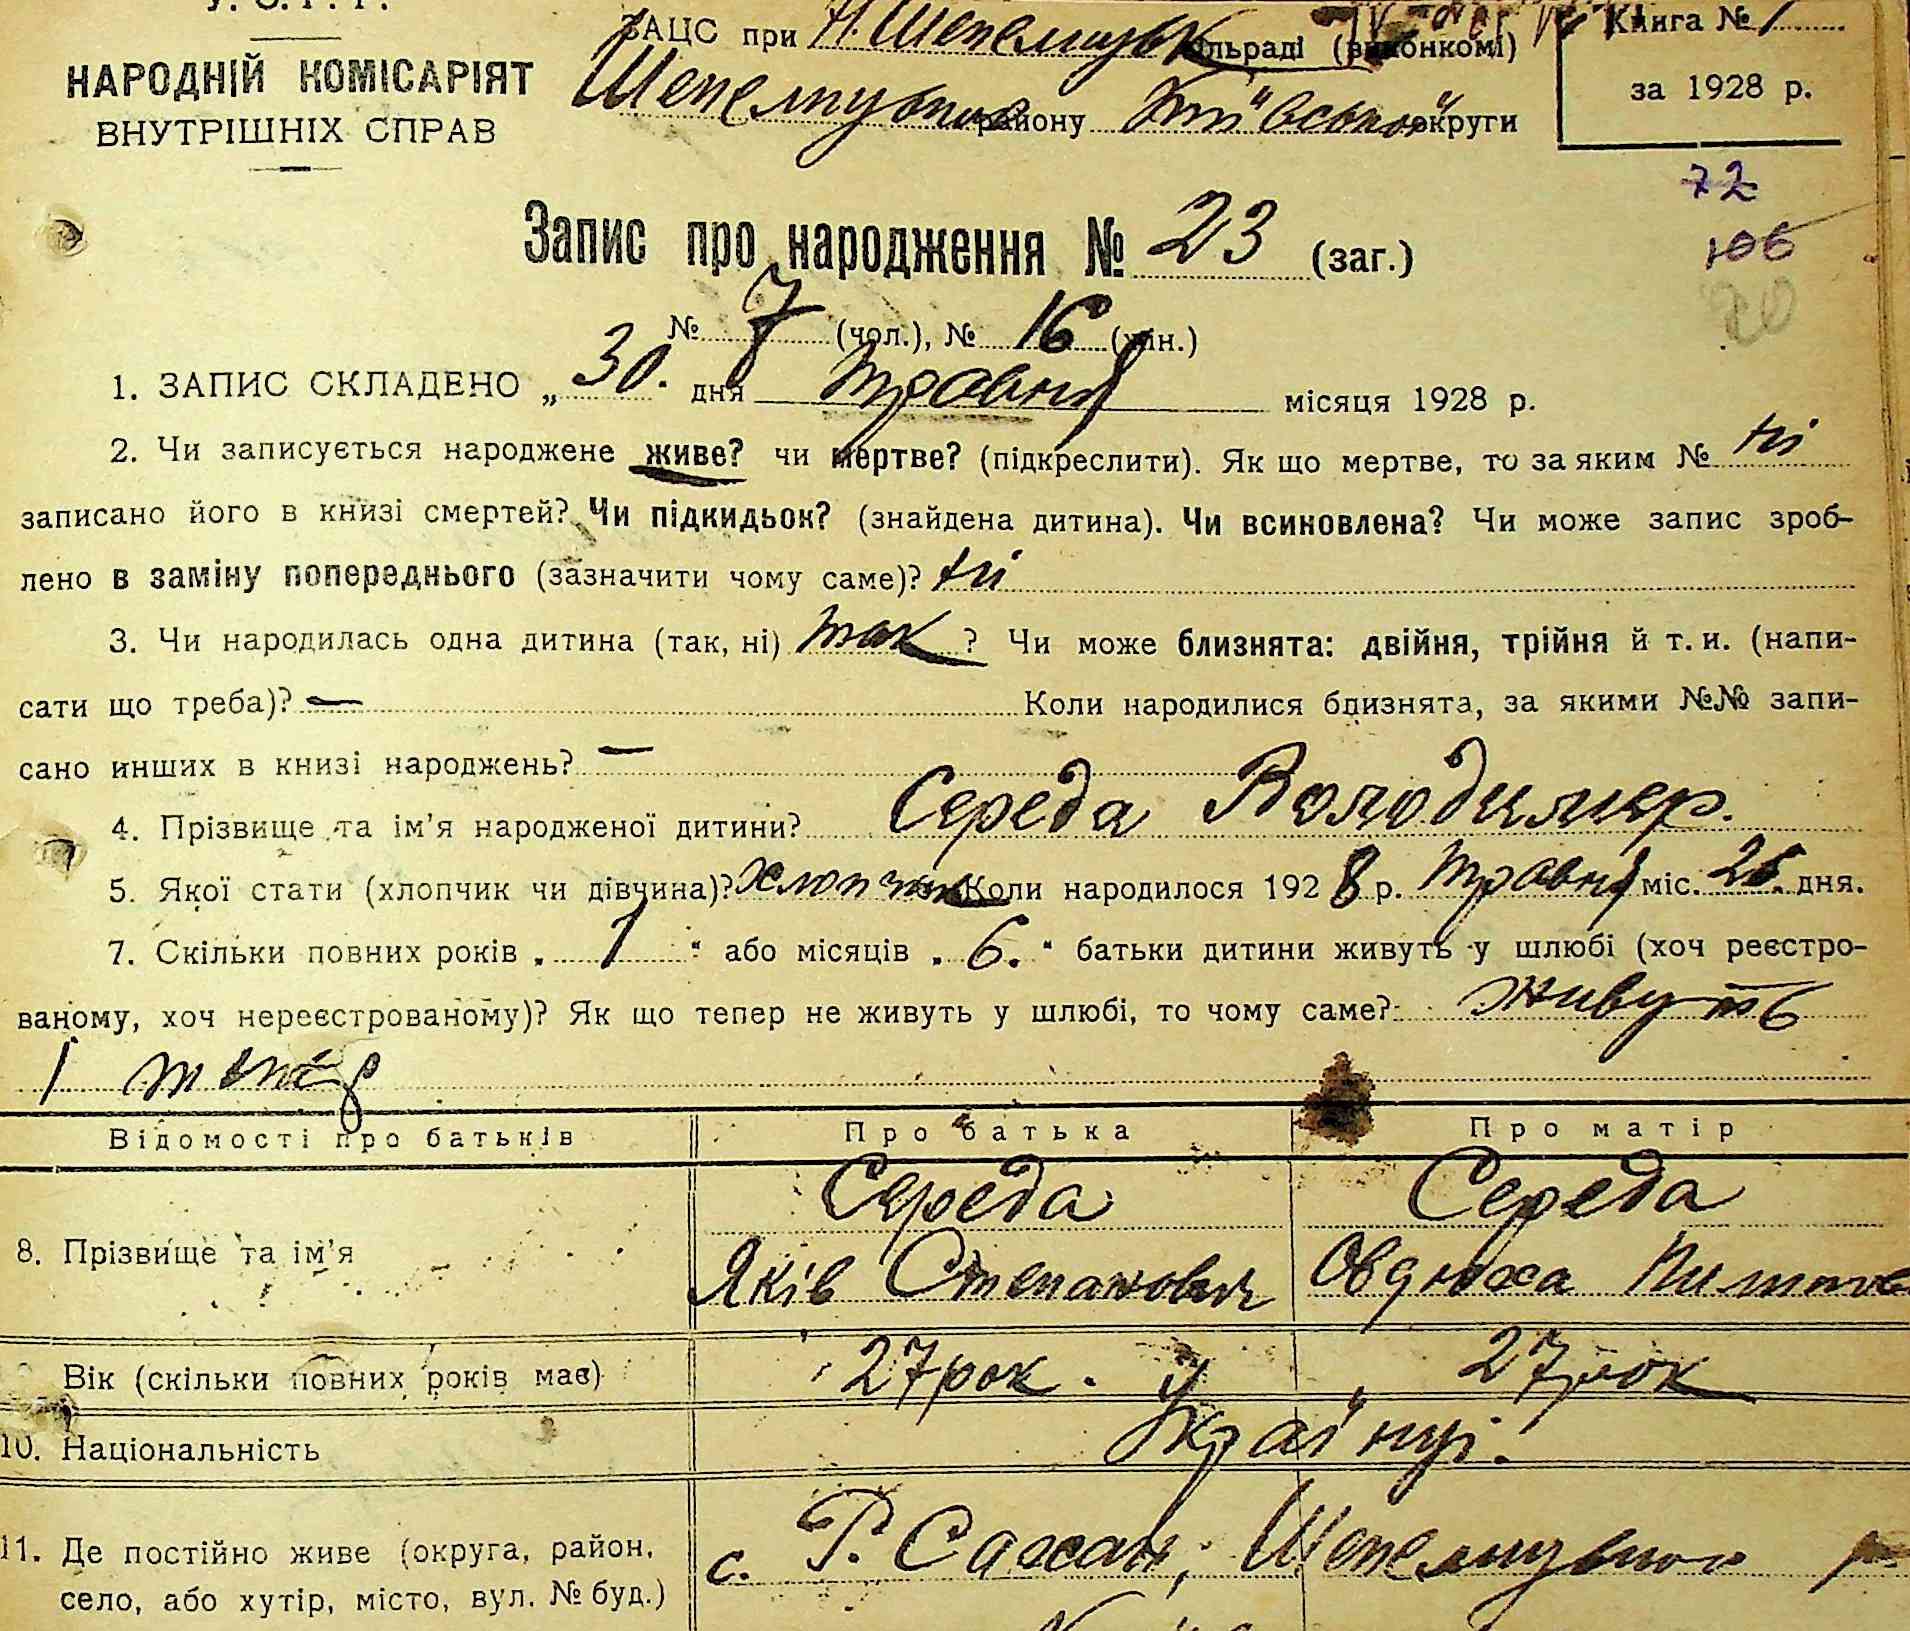 У. С. Р. Р.
НАРОДНІЙ КОМІСАРІЯТ
ВНУТРІШНІХ СПРАВ
ЗАЦС при Н. Шепелицьк сільраді (виконкомі)
Шепелицьк району Київської округи
Книга № 1
за 1928 р.
72
106
20
Запис про народження № 23 (заг.)
№ 7 (чол.), № 16 (жін.)
1. ЗАПИС СКЛАДЕНО „ 30. дня травня місяця 1928 р.
2. Чи записується народжене живе? чи мертве? (підкреслити). Як що мертве, то за яким № ні
записано його в книзі смертей? Чи підкидьок? (знайдена дитина). Чи всиновлена? Чи може запис зроб-
лено в заміну попереднього (зазначити чому саме)? ні
3. Чи народилась одна дитина (так, ні) так ? Чи може близнята: двійня, трійня й т. и. (напи-
сати що треба)? — Коли народилися близнята, за якими №№ запи-
сано инших в книзі народжень? —
4. Прізвище та ім'я народженої дитини? Середа Володимир.
5. Якої стати (хлопчик чи дівчина)? хлопчик Коли народилося 1928 р. травня міс. дня.
7. Скільки повних років „ 1 “ або місяців „ 6. “ батьки дитини живуть у шлюбі (хоч реєстро-
ваному, хоч нереєстрованому)? Як що тепер не живуть у шлюбі, то чому саме? живуть
і тепер
Відомості про батьків Про батька Про матір
Середа Середа
8. Прізвище та ім'я Яків Степанович Овдюха
Вік (скільки повних років має) 27 рок. 27 рок
10. Національність Українці.
11. Де постійно живе (округа, район, с. Р. Сахан, Шепелицького р
село, або хутір, місто, вул. № буд.)